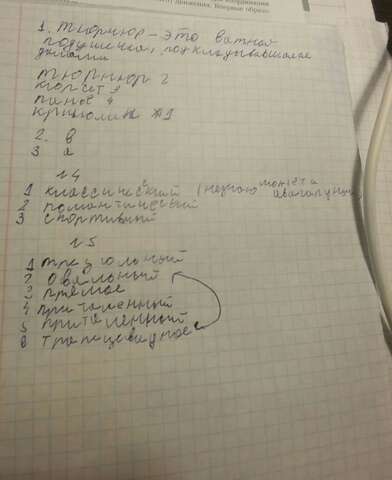 координации
движения. Впервые образо
1. Тюрнюр - это ватной
подушечка, подкладывавшаяся
дамами
тюрнюр 2
корсет 3
панье 4
кринолин 1
2. в
3 а
№4
1 классический (незнаю может и авангардный)
2 романтический
3 спортивный
№5
1 треугольный
2 овальный
3 прямое
4 приталенный
5 приталенный
6 трапецевидное